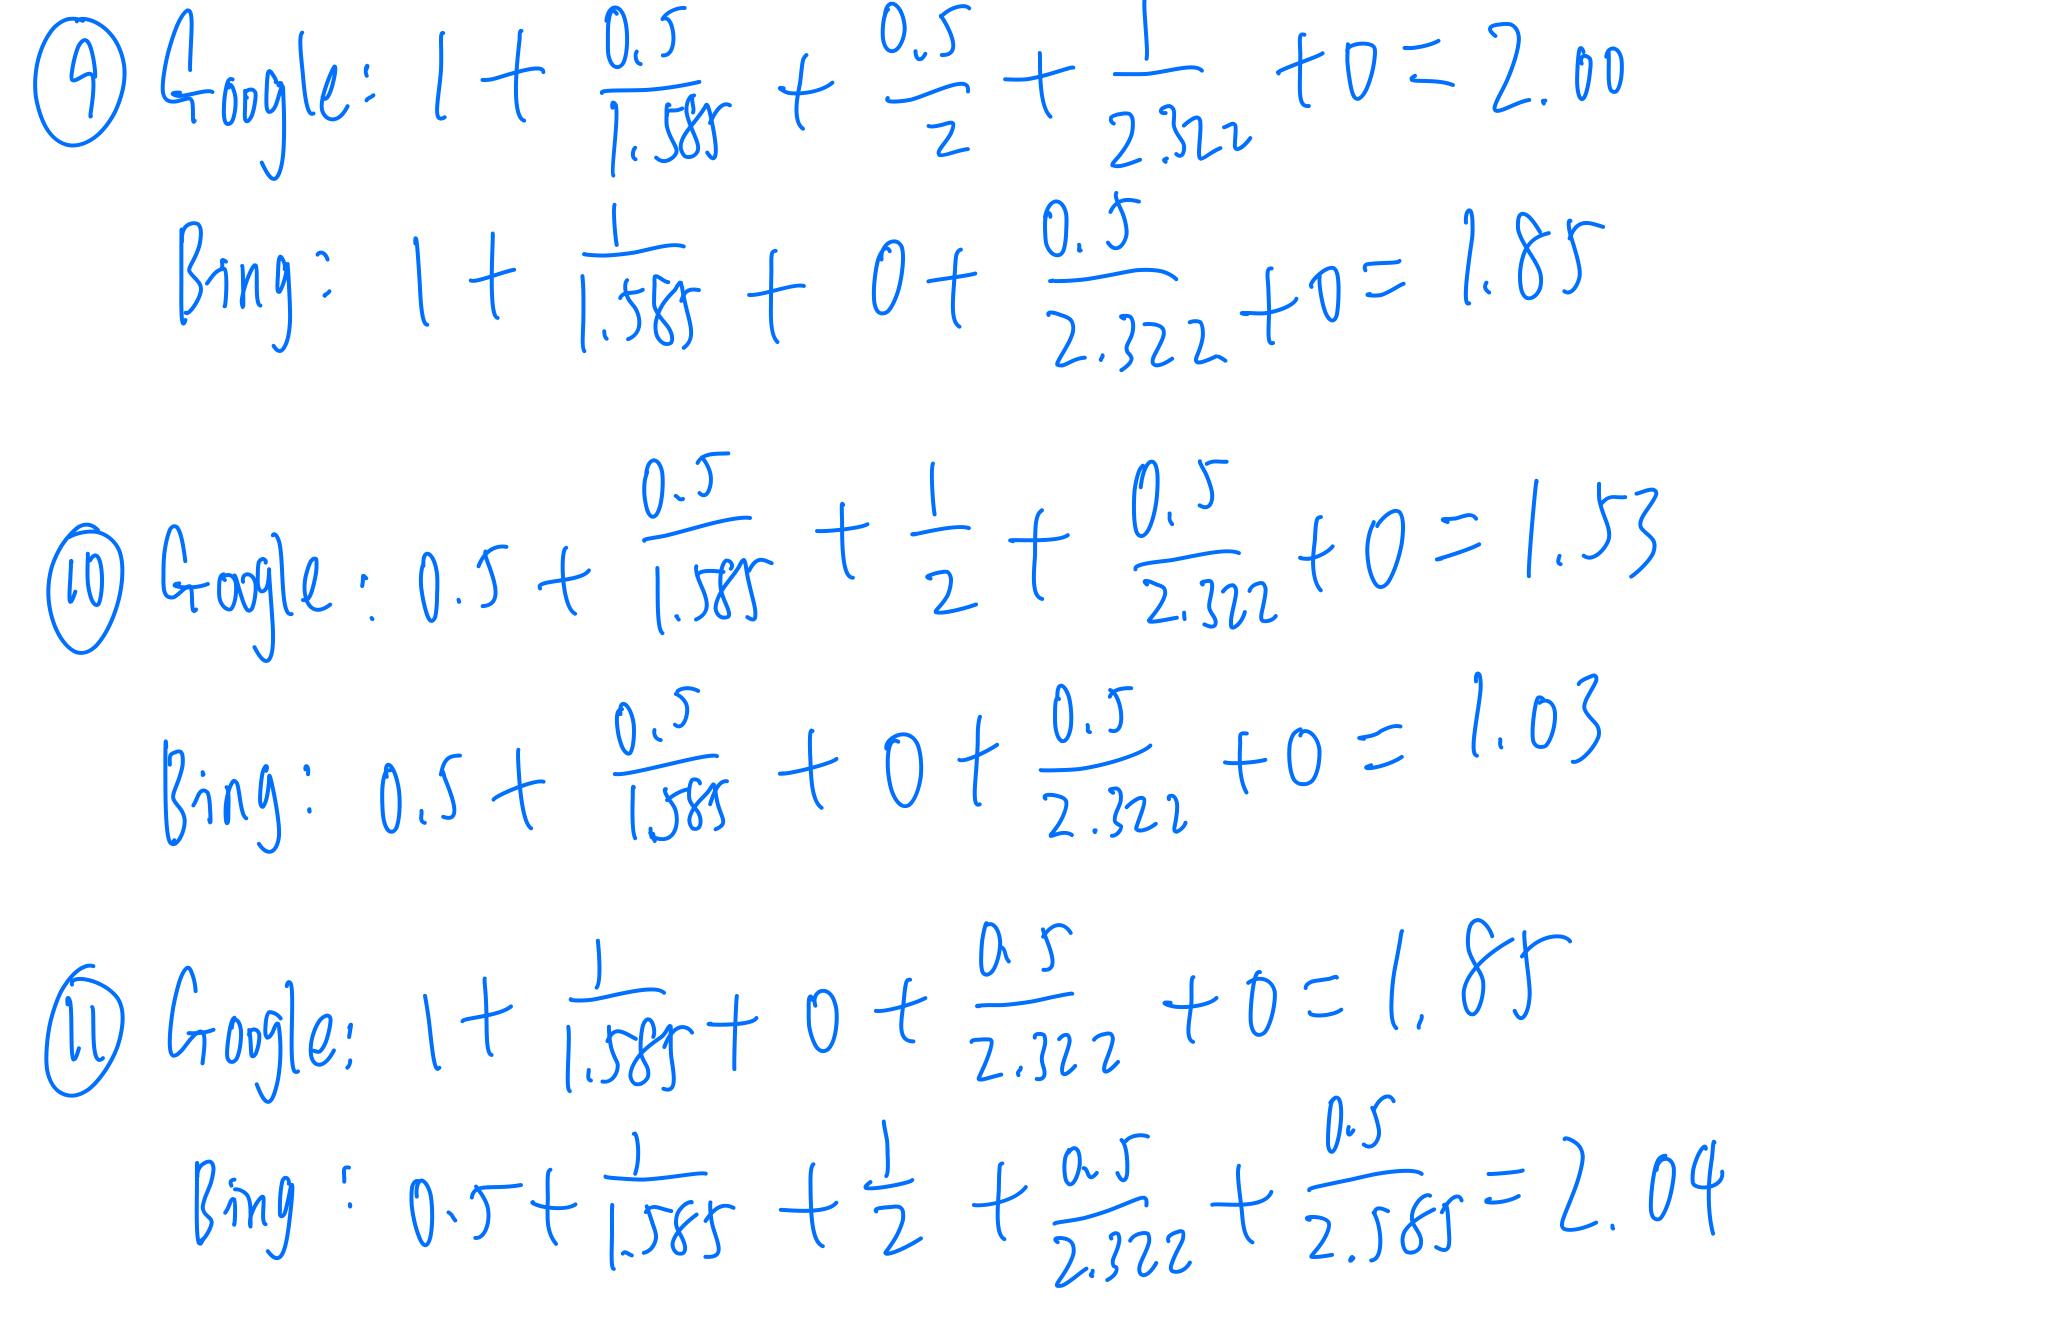 ⑨ Google: 1 + 0.5/1.585 + 0.5/2 + 1/2.322 + 0 = 2.00
Bing: 1 + 1/1.585 + 0 + 0.5/2.322 + 0 = 1.85
⑩ Google: 0.5 + 0.5/1.585 + 1/2 + 0.5/2.322 + 0 = 1.53
Bing: 0.5 + 0.5/1.585 + 0 + 0.5/2.322 + 0 = 1.03
⑪ Google: 1 + 1/1.585 + 0 + 0.5/2.322 + 0 = 1.85
Bing: 0.5 + 1/1.585 + 1/2 + 0.5/2.322 + 0.5/2.585 = 2.04